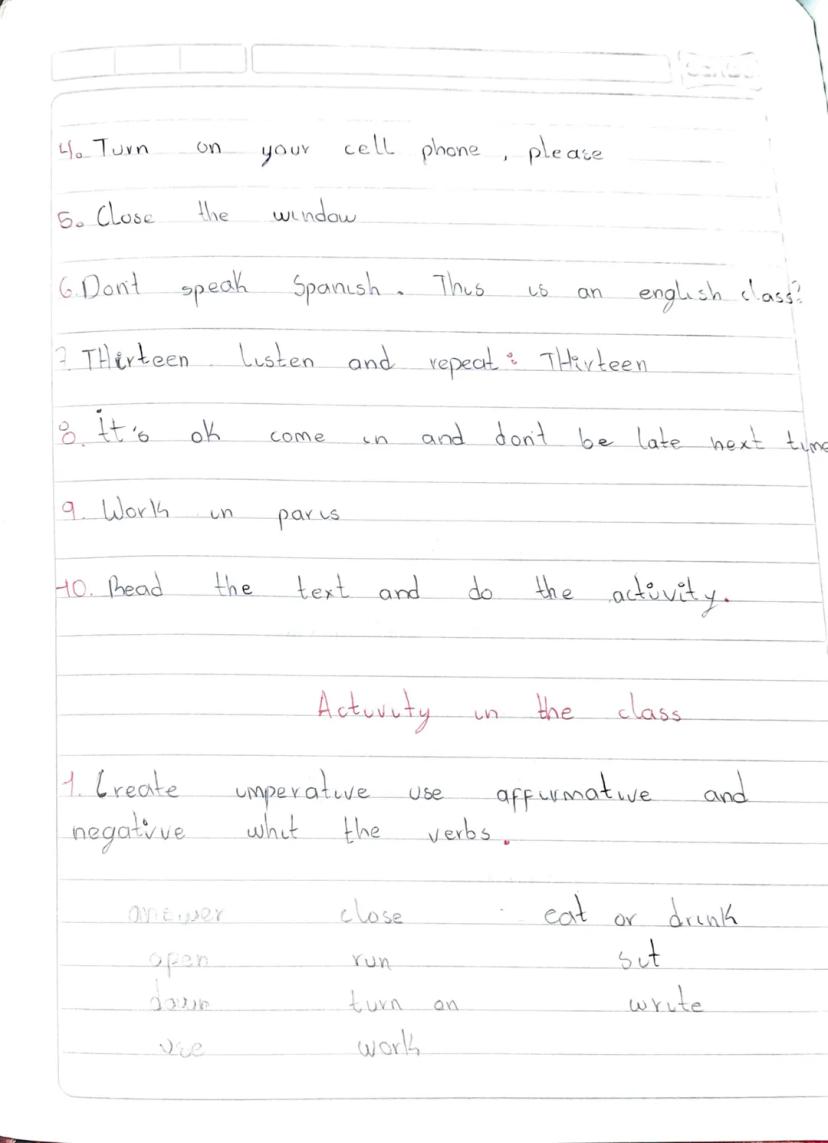 4. Turn on your cell phone, please
5. Close the window
6. Don't speak Spanish. This is an english class!
7. THirteen. Listen and repeat: THirteen
8. It's ok come in and don't be late next time
9. Work in paris
10. Read the text and do the activity.
Activity in the class
1. Create imperative use affirmative and
negative whit the verbs.
answer close eat or drink
open run sit
down turn on write
use work